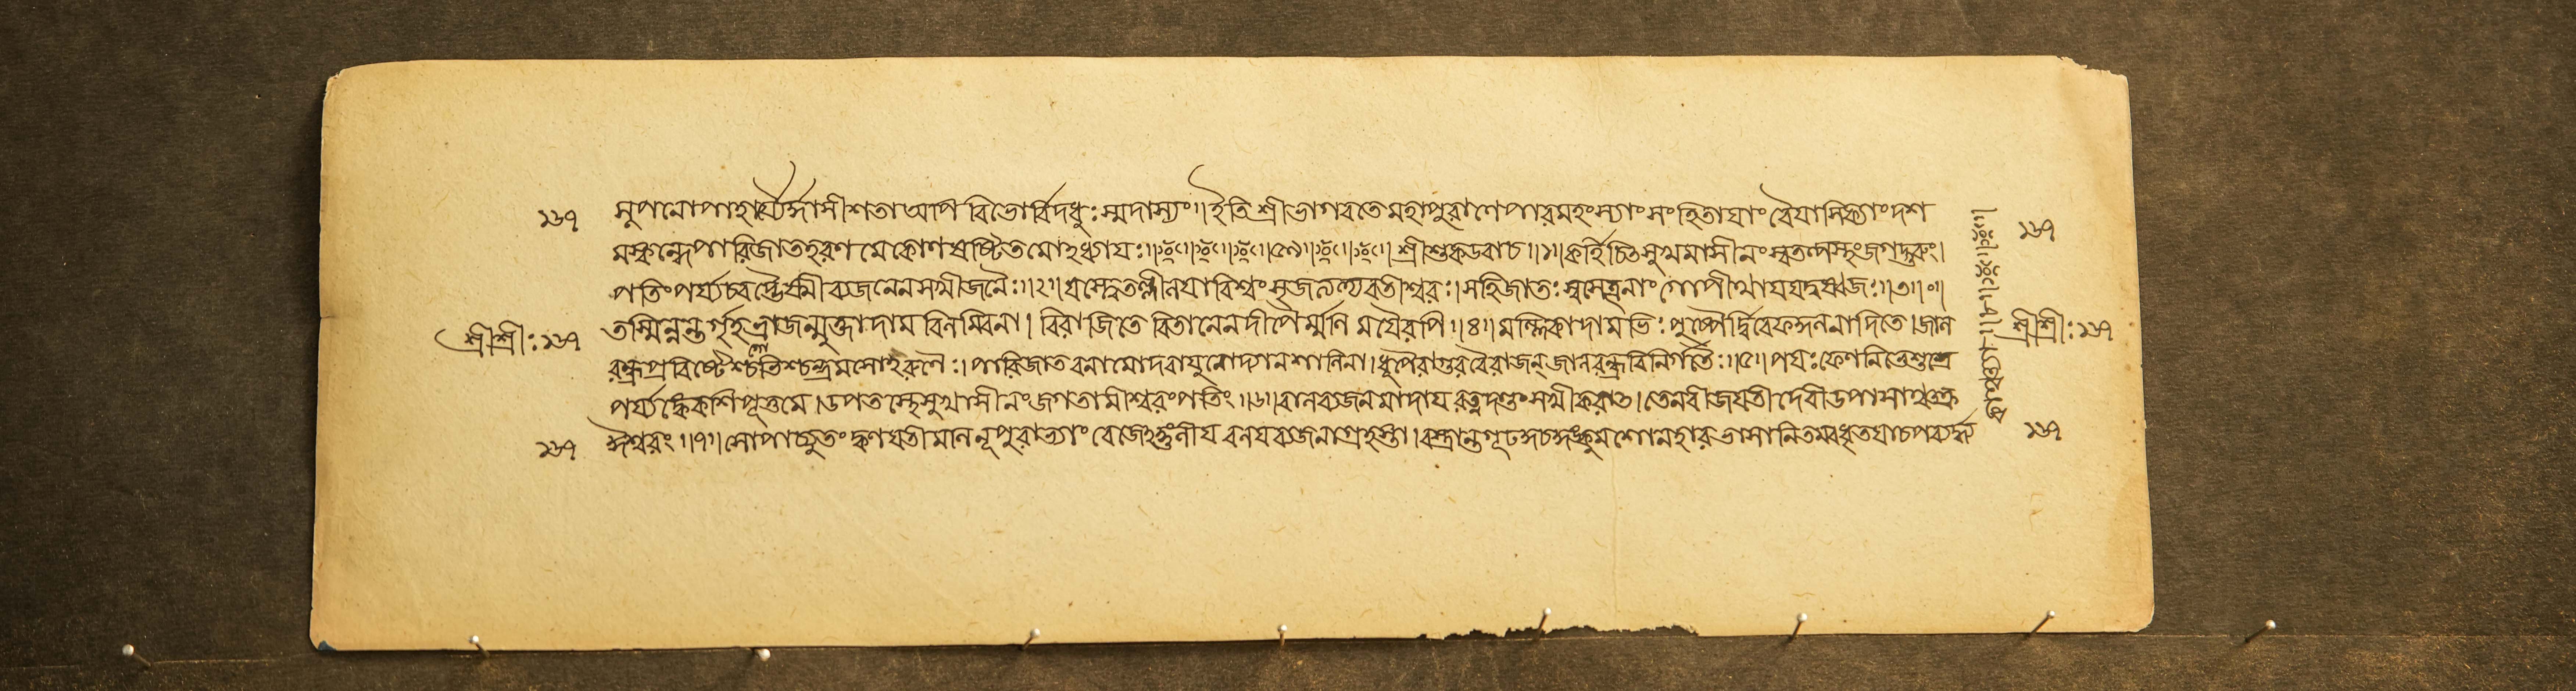 ১৬৭
সুপনোপাহার্য্যৈর্দ্দাসীশতাঅপি বিভোর্বিদধুঃস্মদাস্যং॥ইতি শ্রীভাগবতেমহাপুরাণেপারমহংস্যাং সংহিতায়াং বৈয়াসিক্যাংদশ
১৬৭
মস্কন্ধেপারিজাতহরণ মেকোণষষ্টিতমোঽধ্যায়ঃ॥৫৯॥ শ্রীশুকউবাচ॥১॥কর্হিচিত্সুখমাসীনং স্বতল্পস্থংজগদ্গুরুং।
পতিংপর্য্যচরদ্ভৈষ্মীব্যজনেনসখীজনৈঃ॥২॥যস্ত্বেতল্লীলয়াবিশ্বং সৃজত্যত্ত্যবতীশ্বরঃ।সহিজাতঃস্বসেতূনাং গোপীথায়যদুষ্বজঃ॥৩॥
শ্রীশ্রীঃ১৬৭
তস্মিন্নন্তর্গৃহেভ্রাজন্মুক্তাদাম বিলম্বিনা। বিরাজিতে বিতানেনদীপৈর্ম্মণি ময়ৈরপি॥৪॥মল্লিকাদামভিঃপুষ্পৈর্দ্বিরেফকুলনাদিতে।জাল
শ্রীশ্রীঃ১৬৭
রন্ধ্রপ্রবিষ্টৈশ্চগোভিশ্চন্দ্রমসোঽরুণৈঃ।পারিজাতবনামোদবায়ুনোদ্যানশালিনা।ধূপৈরাগুরবৈরাজন্ জালরন্ধ্রবিনির্গতৈঃ॥৫॥পয়ঃফেণনিভেশুভ্রে
পর্য্যঙ্কেকশিপূত্তমে।উপতস্থেসুখাসীনংজগতামীশ্বরংপতিং॥৬॥বালব্যজনমাদায় রত্নদণ্ডংসখীকরাত্।তেনবীজয়তী দেবীউপাসাঞ্চক্র
ঈশ্বরং॥৭॥সোপাচ্যুতং ক্বণয়তীমণিনূপুরাভ্যাং রেজেঽঙ্গুলীয় বলয়ব্যজনাগ্রহস্তা।বস্ত্রান্তগূঢকুচকুঙ্কুমশোণহারভাসানিতম্বধৃতয়াচপরার্দ্ধ্য
১৬৭
১৬৭